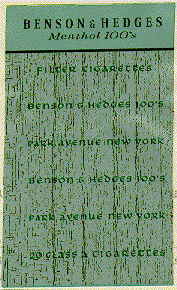 BENSON & HEDGES
Menthol 100's
FILTER CIGARETTES
BENSON & HEDGES 100'S
PARK AVENUE NEW YORK
BENSON & HEDGES 100'S
PARK AVENUE NEW YORK
20 CLASS A CIGARETTES